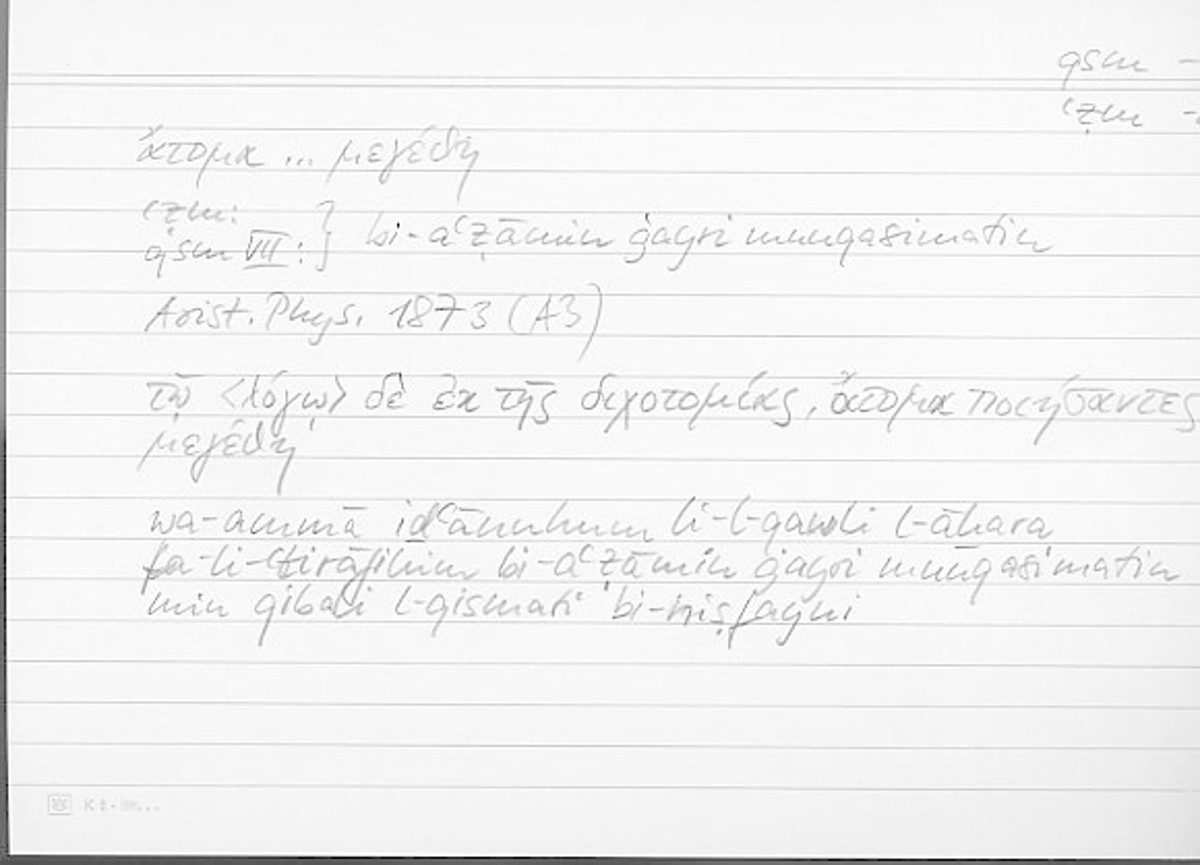 qsm –
ʿẓm –
ἄτομα ... μεγέθη
ʿẓm:
qsm VII: } bi-aʿẓāmin ġayri munqasimatin
Arist. Phys. 187 a 3 (A3)
τῷ <λόγῳ> δὲ ἐκ τῆς διχοτομίας, ἄτομα ποιήσαντες
μεγέθη
wa-ammā iḏʿānuhum li-l-qawli l-āḫara
fa-li-ʿtirāfihim bi-aʿẓāmin ġayri munqasimatin
min qibali l-qismati bi-niṣfayni